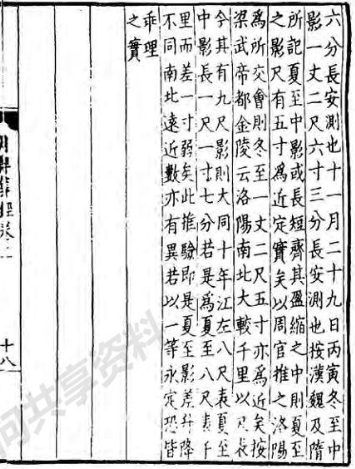 六分長安測也十一月二十九日丙寅冬至中
影一丈二尺六寸三分長安測也按漢魏及隋
所記夏至中影或長短齊其盈縮之中則夏至
之影尺有五寸為近定實矣以周官推之洛陽
為所交會則冬至一丈二尺五寸亦為近矣按
梁武帝都金陵云洛陽南北大較千里以尺表
令其有九尺影則大同十年江左八尺表夏至
中影長一尺一寸七分若是為夏至八尺表千
里而差一寸弱矣此推驗即是夏至影差升降
不同南北遠近數亦有異若以一等永定恐皆
乖理
之實
十八
共享资料